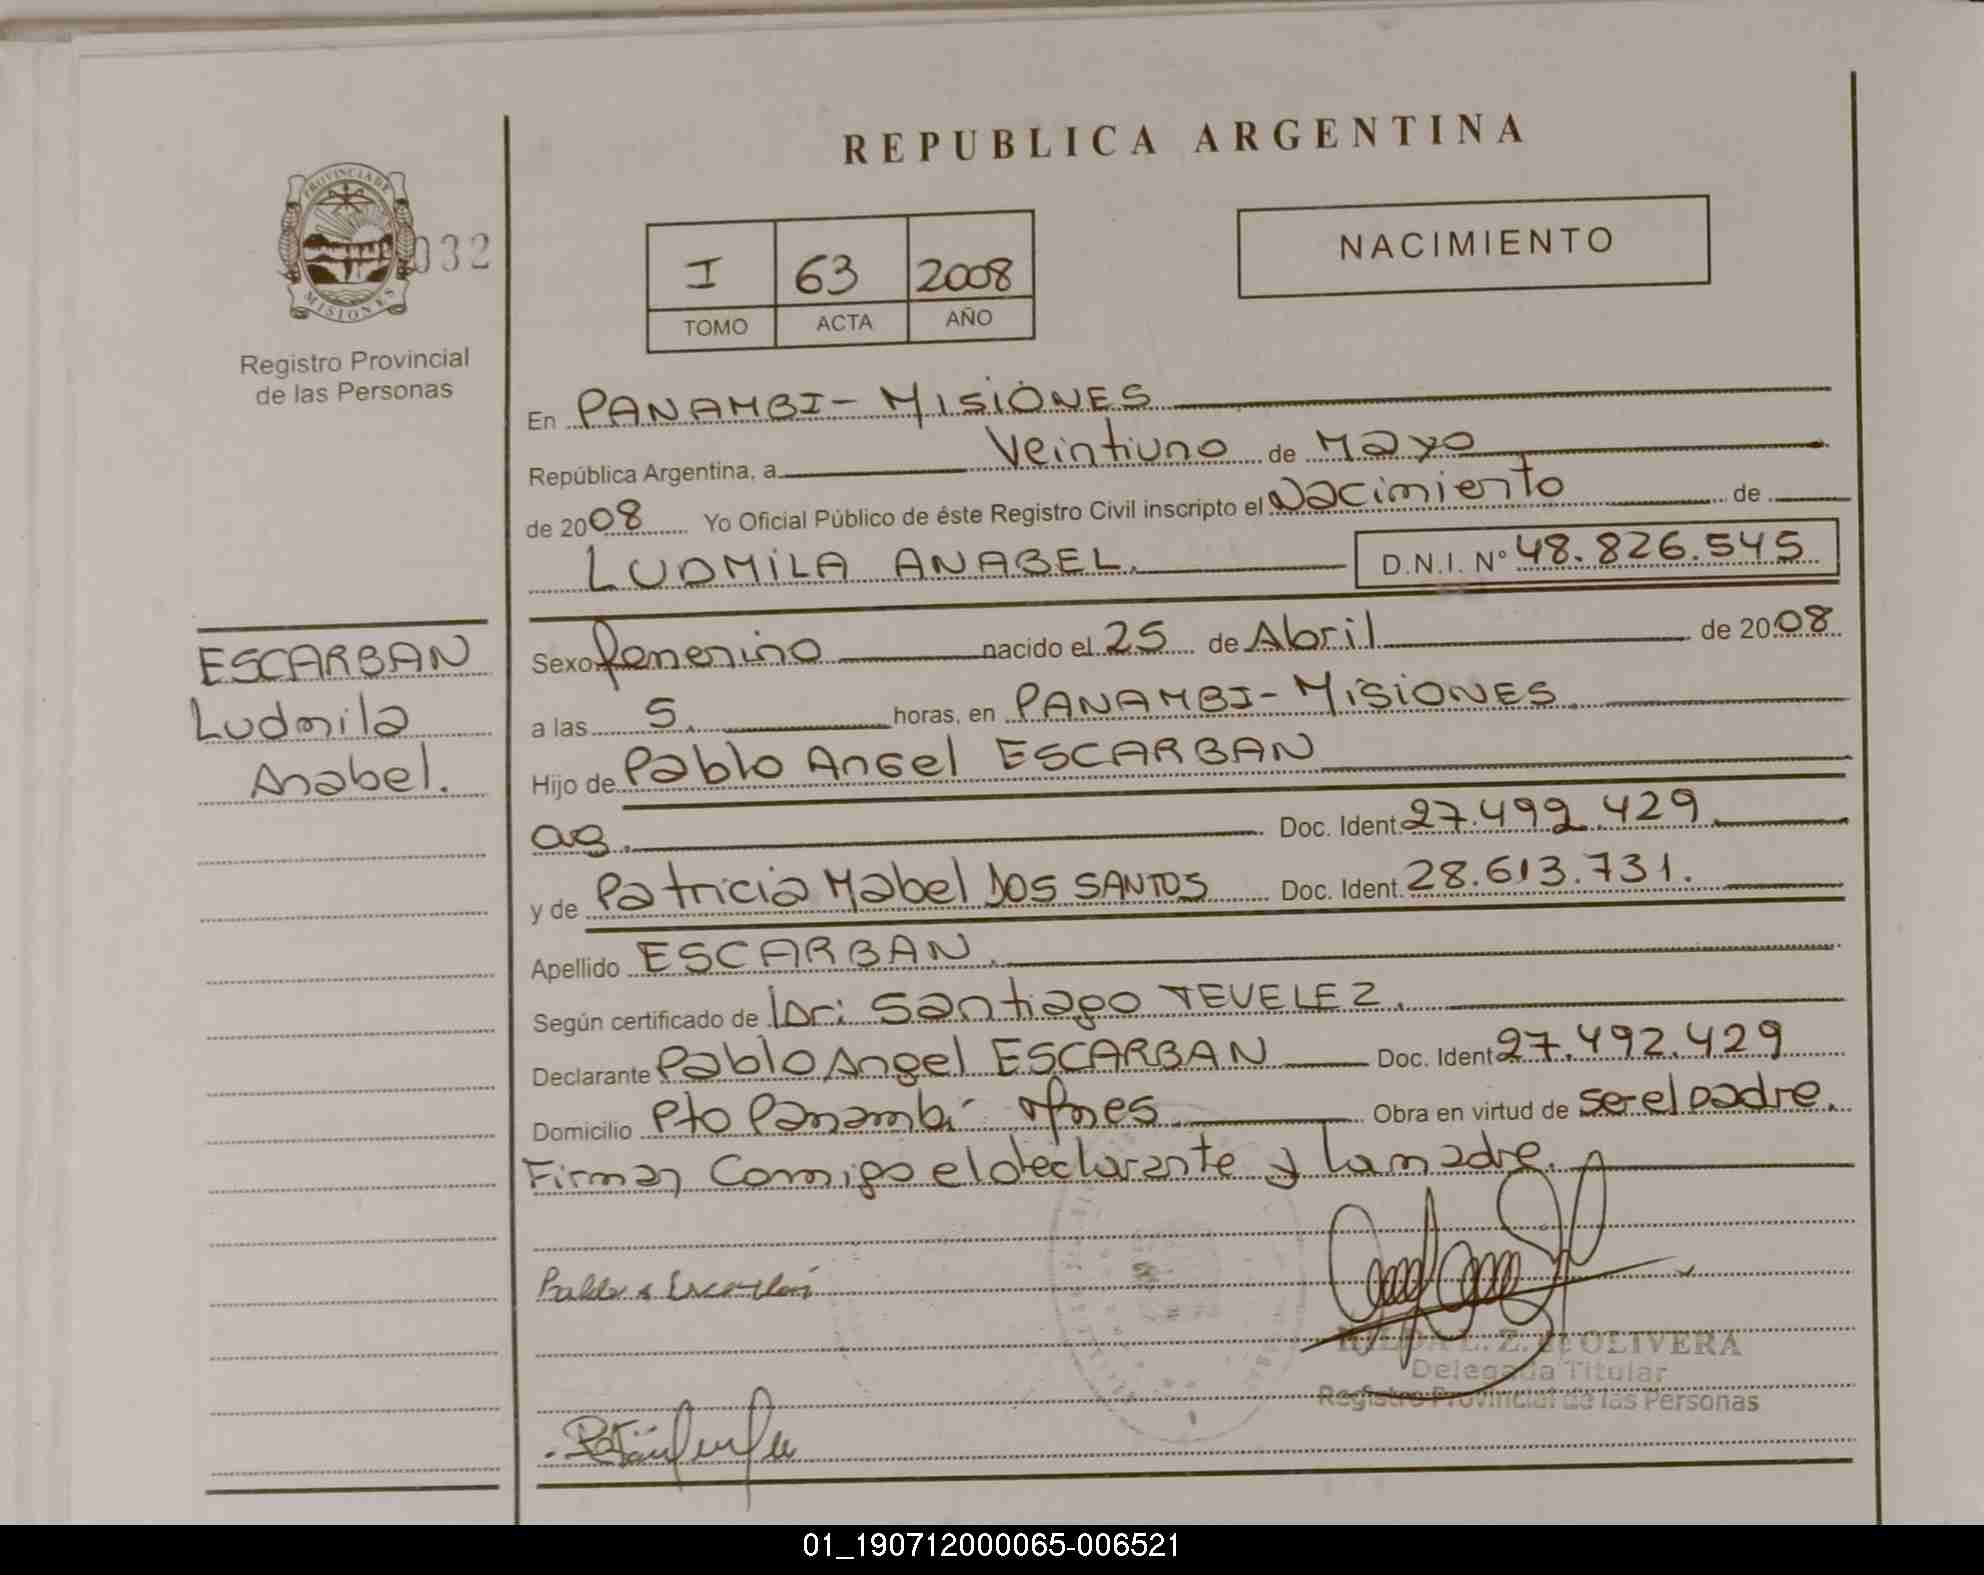 REPUBLICA ARGENTINA
PROVINCIA DE
MISIONES
032
Registro Provincial
de las Personas
I 63 2008
TOMO ACTA AÑO
NACIMIENTO
En PANAMBI - MISIONES
República Argentina, a Veintiuno de Mayo
de 2008 Yo Oficial Público de éste Registro Civil inscripto el Nacimiento de
LUDMILA ANABEL. D.N.I. N° 48.826.545
ESCARBAN
Ludmila
Anabel.
Sexo femenino nacido el 25 de Abril de 2008
a las 5. horas, en PANAMBI - MISIONES.
Hijo de Pablo Angel ESCARBAN
Doc. Ident. 27.492.429
y de Patricia Mabel DOS SANTOS Doc. Ident. 28.613.731.
Apellido ESCARBAN.
Según certificado de Dr: Santiago TEVELEZ.
Declarante Pablo Angel ESCARBAN Doc. Ident 27.492.429
Domicilio Pto Panambí Mnes Obra en virtud de ser el padre.
Firman Conmigo el declarante y la madre.
L. Z. de OLIVERA
Delegada Titular
Registro Provincial de las Personas
01_190712000065-006521